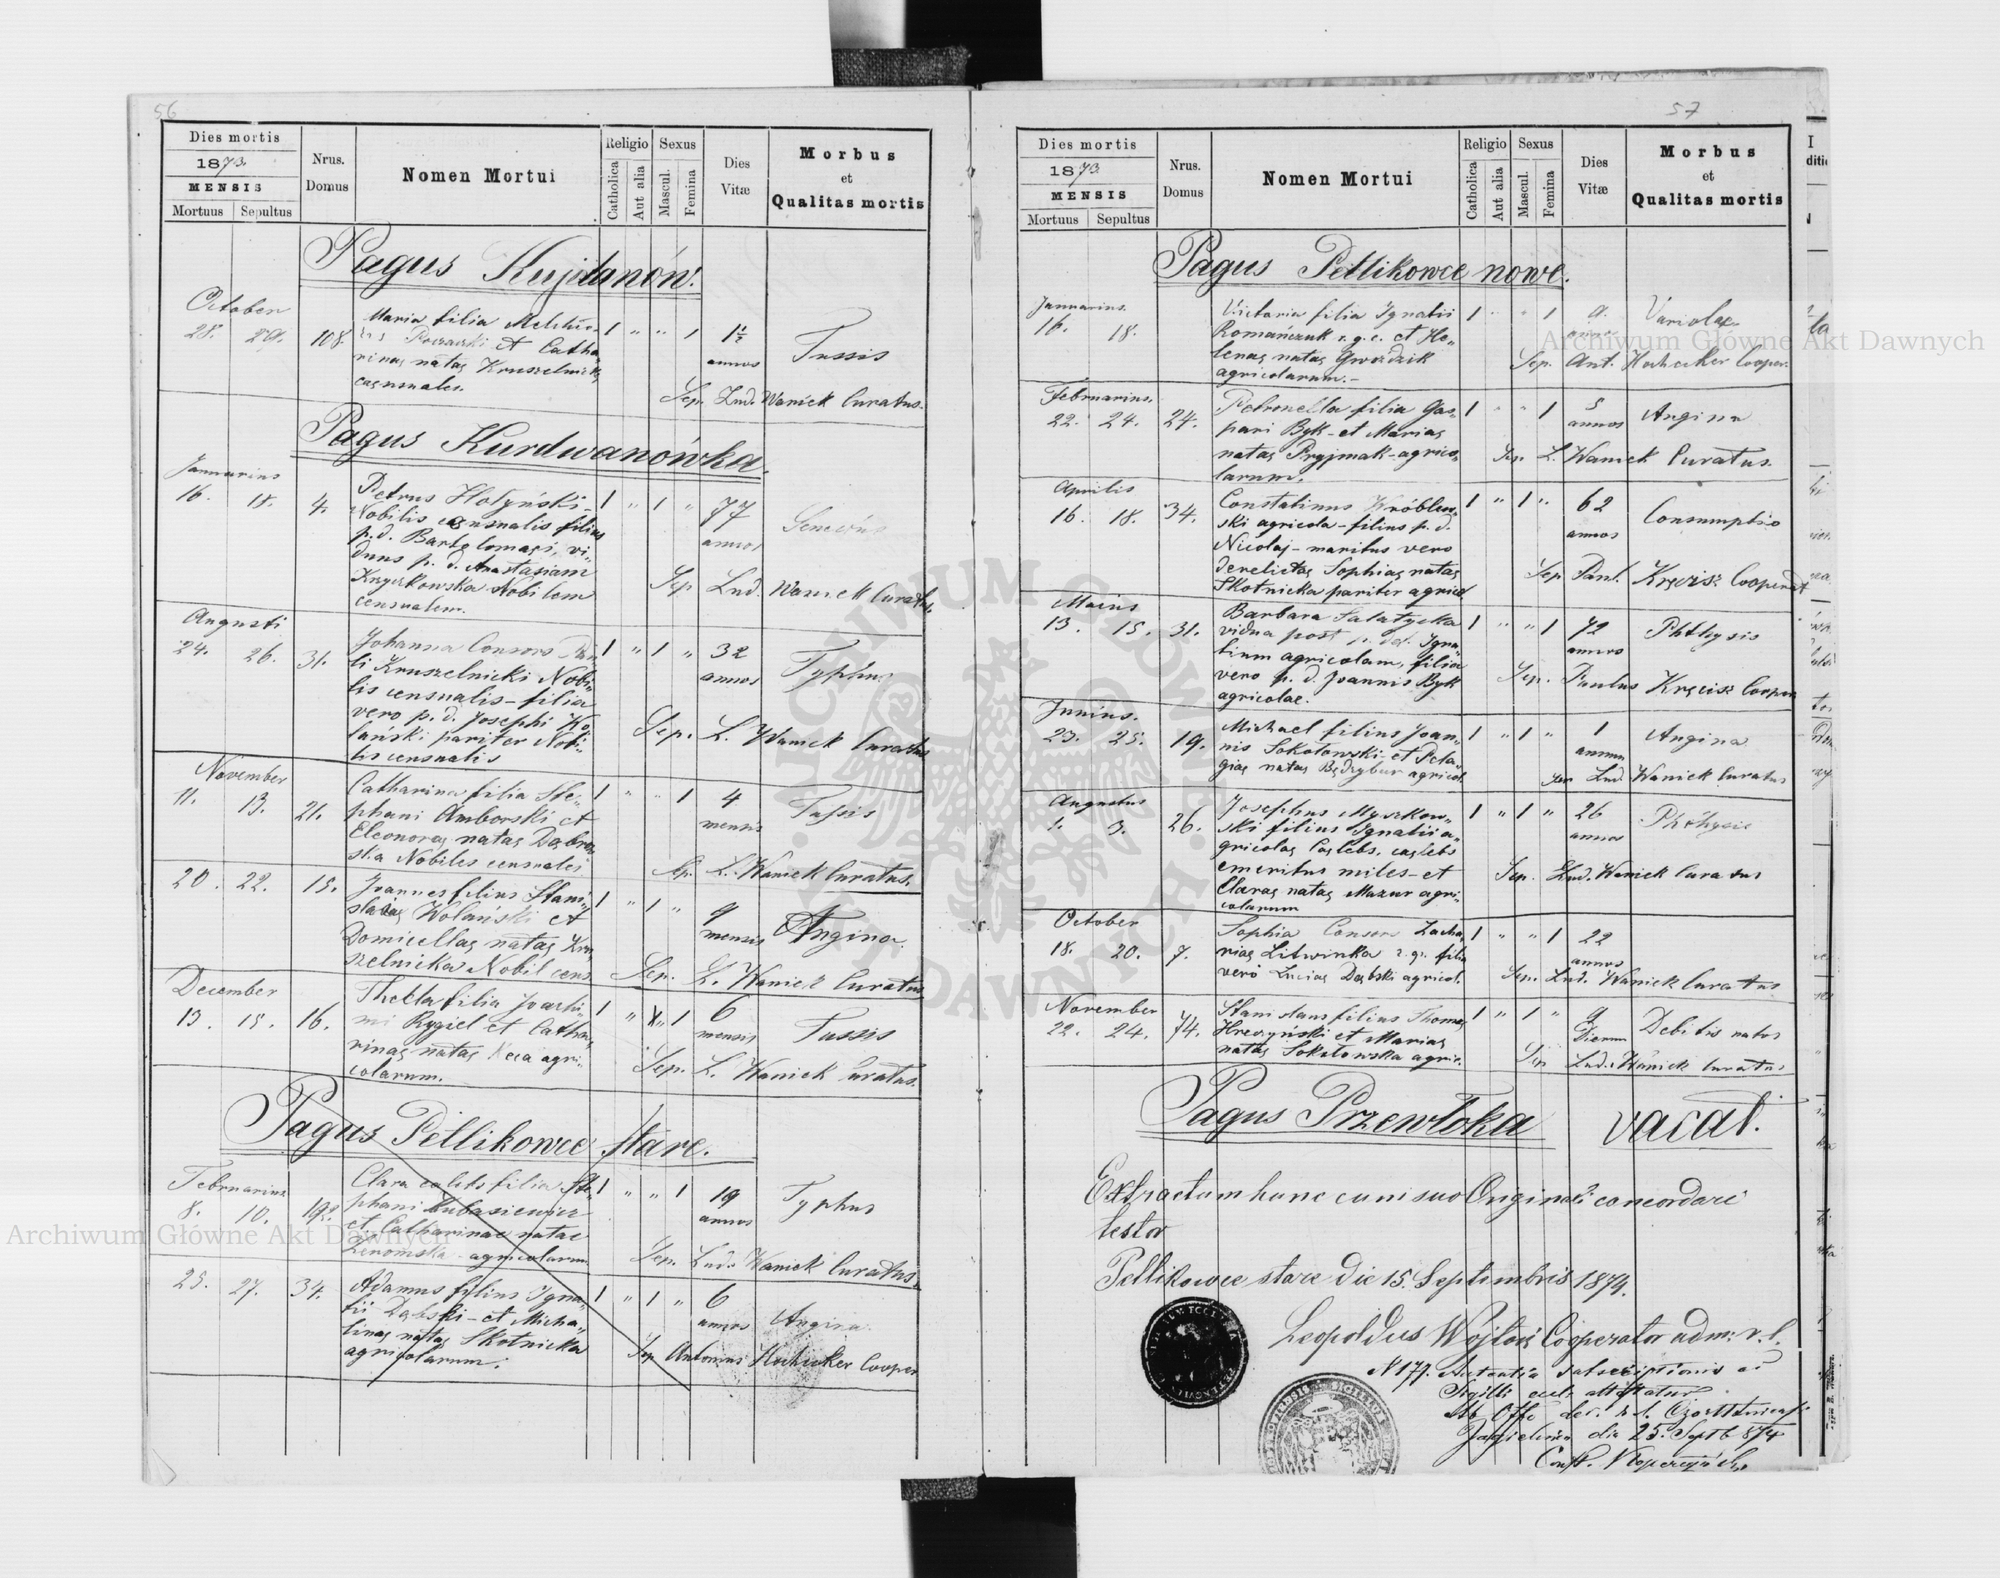 56
Dies mortis
1873.
MENSIS
Mortuus Sepultus
Nrus.
Domus
Nomen Mortui
Religio
Catholica
Aut alia
Sexus
Mascul.
Femina
Dies
Vitæ
Morbus
et
Qualitas mortis
Pagus Kujdanów.
October
28. 29. 108 Maria filia Melchio-
ris et Catha-
rinaę nataę Kruszelnicka
caęnsuales.
1 " " 1 1½
annos
Tussis
Sep. Lud. Waniek Curatus.
Pagus Kurdwanówka.
Januarius
16. 18. 4. Petrus Hołyński-
Nobilis censualis filius
p.d. Bartolomaęi, vi-
duus p. d. Anastasiam
Krzyżkowska Nobilem
censualem.
1 " 1 " 77
annos
Sep Lud. Waniek Curatus
Augusti
24. 26. 31. Johanna Consors
Kruszelnicki Nobi-
lis censualis-filia
vero p.d. Josephi
pariter Nobi-
lis censualis
1 " 1 " 32
annos
Typhus
Sep. L. Waniek Curatus
November
11. 13. 21. Catharina filia Ste-
phani Amborski et
Eleonoraę nataę Dąbrow-
ska Nobiles censuales
1 " " 1 4
mensis
Tussis
Sep. L. Waniek Curatus.
20. 22. 15. Joannes filius Stani-
slai Wolański et
Domicellaę nataę Kru-
szelnicka Nobil cens
1 " 1 " 9
mensis
Angina.
Sep. L. Waniek Curatus
December
13. 15. 16. Thekla filia Joachi-
mi Rygiel et Catha-
rinaę nataę agri-
colarum.
1 " 1 6
mensis
Tussis
Sep. L. Waniek Curatus.
Pagus Petlikowce stare.
Februarius
8. 10. 192 Clara caelebs filia Ste-
phani Łukasiewicz
et Catharinae natae
agricolarum
1 " " 1 19
annos
Typhus
Sep. Lud. Waniek Curatus.
25. 27. 34. Adamus filius Igna-
tii Dąbski-et Micha-
linaę nataę Skotnicka
agricolarum.
1 " 1 " 6
annos
Angina
Sep Antonius Hochecker Cooper
57
Dies mortis
1873.
MENSIS
Mortuus Sepultus
Nrus.
Domus
Nomen Mortui
Religio
Catholica
Aut alia
Sexus
Mascul.
Femina
Dies
Vitæ
Morbus
et
Qualitas mortis
Pagus Petlikowce nowe.
Januarius.
16. 18. Victoria filia Ignatii
Romańczuk r.g.c. et He-
lenaę nataę Gwozdzik
agricolarum.-
1 " " 1 9.
annos
Variolae
Sep. Ant. Hochecker Cooper.
Februarius.
22. 24. 24. Petronella filia Gas-
pari Byk-et Mariaę
nataę Pryjmak-agrico-
larum.
1 " " 1 5
annos
Angina
Sep. L. Waniek Curatus.
Aprilis
16. 18. 34. Constatinus Wróblew-
ski agricola-filius p.d.
Nicolaj-maritus vero
derelictaę Sophiaę nataę
Skotnicka pariter agricol
1 " 1 " 62
annos
Consumptio
Sep Paul. Kręcisz Cooperat
Maius
13. 15. 31. Barbara Sałatycka
vidua post p. def. Igna-
tium agricolam, filia
vero p. d. Joannis Byk
agricolae.
1 " " 1 72
annos
Phthysis
Sep. Paulus Kręcisz Cooper
Junius.
23. 25. 19. Michael filius Joan-
nis Sokołowski-et Pela-
giaę nataę Będzybur agricol.
1 " 1 " 1
annum
Angina
Sep Lud. Waniek Curatus
Augustus
1. 3. 26. Josephus Myszkow-
ski filius Ignatii a-
gricolaę Caęlebs, caęlebs
emeritus miles-et
Claraę nataę Mazur agri-
colarum
1 " 1 " 26
annos
Phthysis
Sep. Lud. Waniek Curatus
October
18. 20. 7. Sophia Consors Zacha-
riaę Litwinka r.gr. filia
vero Luciaę Dąbski agricol.
1 " " 1 22
annos
Sep. Lud. Waniek Curatus
November
22. 24. 74. Stanislaus filius Thomaę
Hreczyński et Mariaę
nataę Sokołowska agric.
1 " 1 " 9
Dierum
Debilis natus
Sep Lud. Waniek Curatus
Pagus Przewłoka vacat.
Extractum hunc cum suo Originali concordare
testor
Petlikowce stare die 15. Septembris 1874.
Leopoldus Wojtoń Cooperator adm: r. l.
N 177. Autentia subscriptionis ac
Sigilli eccl. attestatur
Ab Offo dec. r. l. Czortkoviensi
Jagielnica die 25. Septb 874
Archiwum Główne Akt Dawnych
Archiwum Główne Akt Dawnych
ARCHIWUM GŁÓWNE AKT DAWNYCH